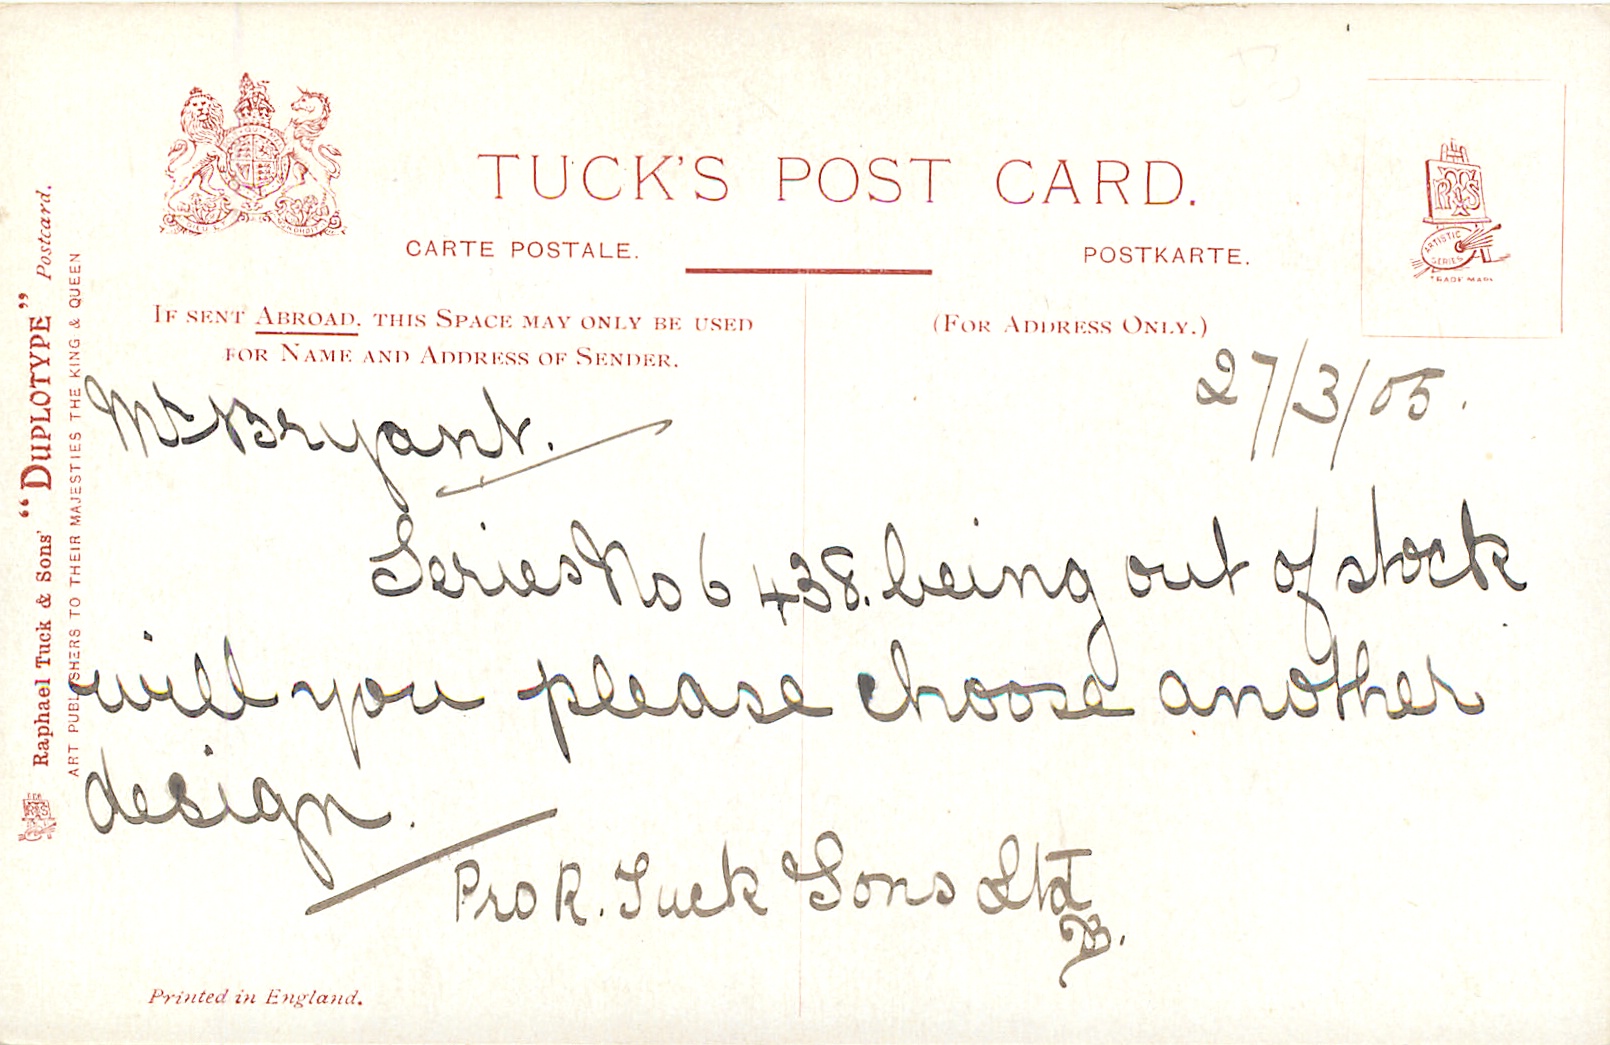 TUCK'S POST CARD.
CARTE POSTALE.
POSTKARTE.
IF SENT ABROAD, THIS SPACE MAY ONLY BE USED
FOR NAME AND ADDRESS OF SENDER.
(FOR ADDRESS ONLY.)
ARTISTIC
SERIES
TRADE MARK
Raphael Tuck & Sons' "DUPLOTYPE" Postcard.
ART PUBLISHERS TO THEIR MAJESTIES THE KING & QUEEN
27/3/05.
Mr Bryant.
Series No 6438. being out of stock
will you please choose another
design.
Pro R. Tuck Sons Ltd
B.
Printed in England.